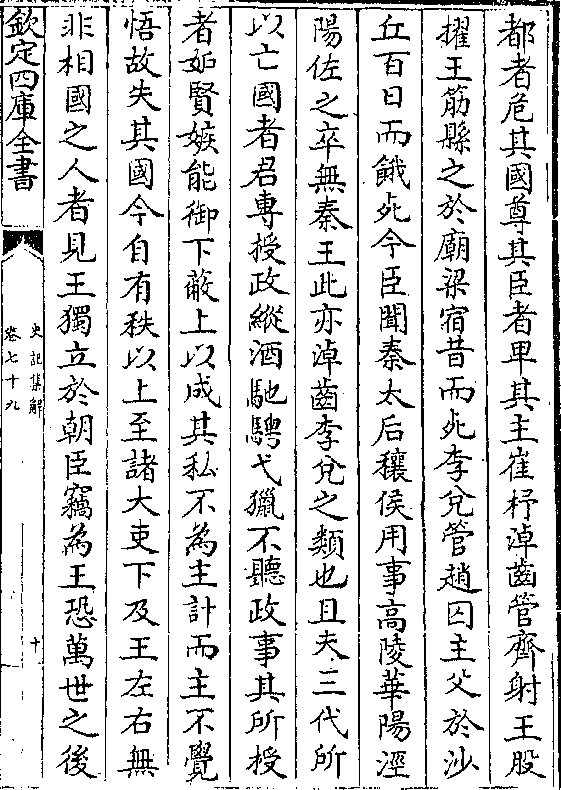 都者危其國尊其臣者卑其主崔杼淖齒管齊射王股
擢王筋縣之於廟梁宿昔而死李兌管趙囚主父於沙
丘百日而餓死今臣聞秦太后穰侯用事高陵華陽涇
陽佐之卒無秦王此亦淖齒李兌之類也且夫三代所
以亡國者君專授政縱酒馳騁弋獵不聽政事其所授
者妬賢嫉能御下蔽上以成其私不為主計而主不覺
悟故失其國今自有秩以上至諸大吏下及王左右無
非相國之人者見王獨立於朝臣竊為王恐萬世之後
欽定四庫全書
史記集解
卷七十九
十